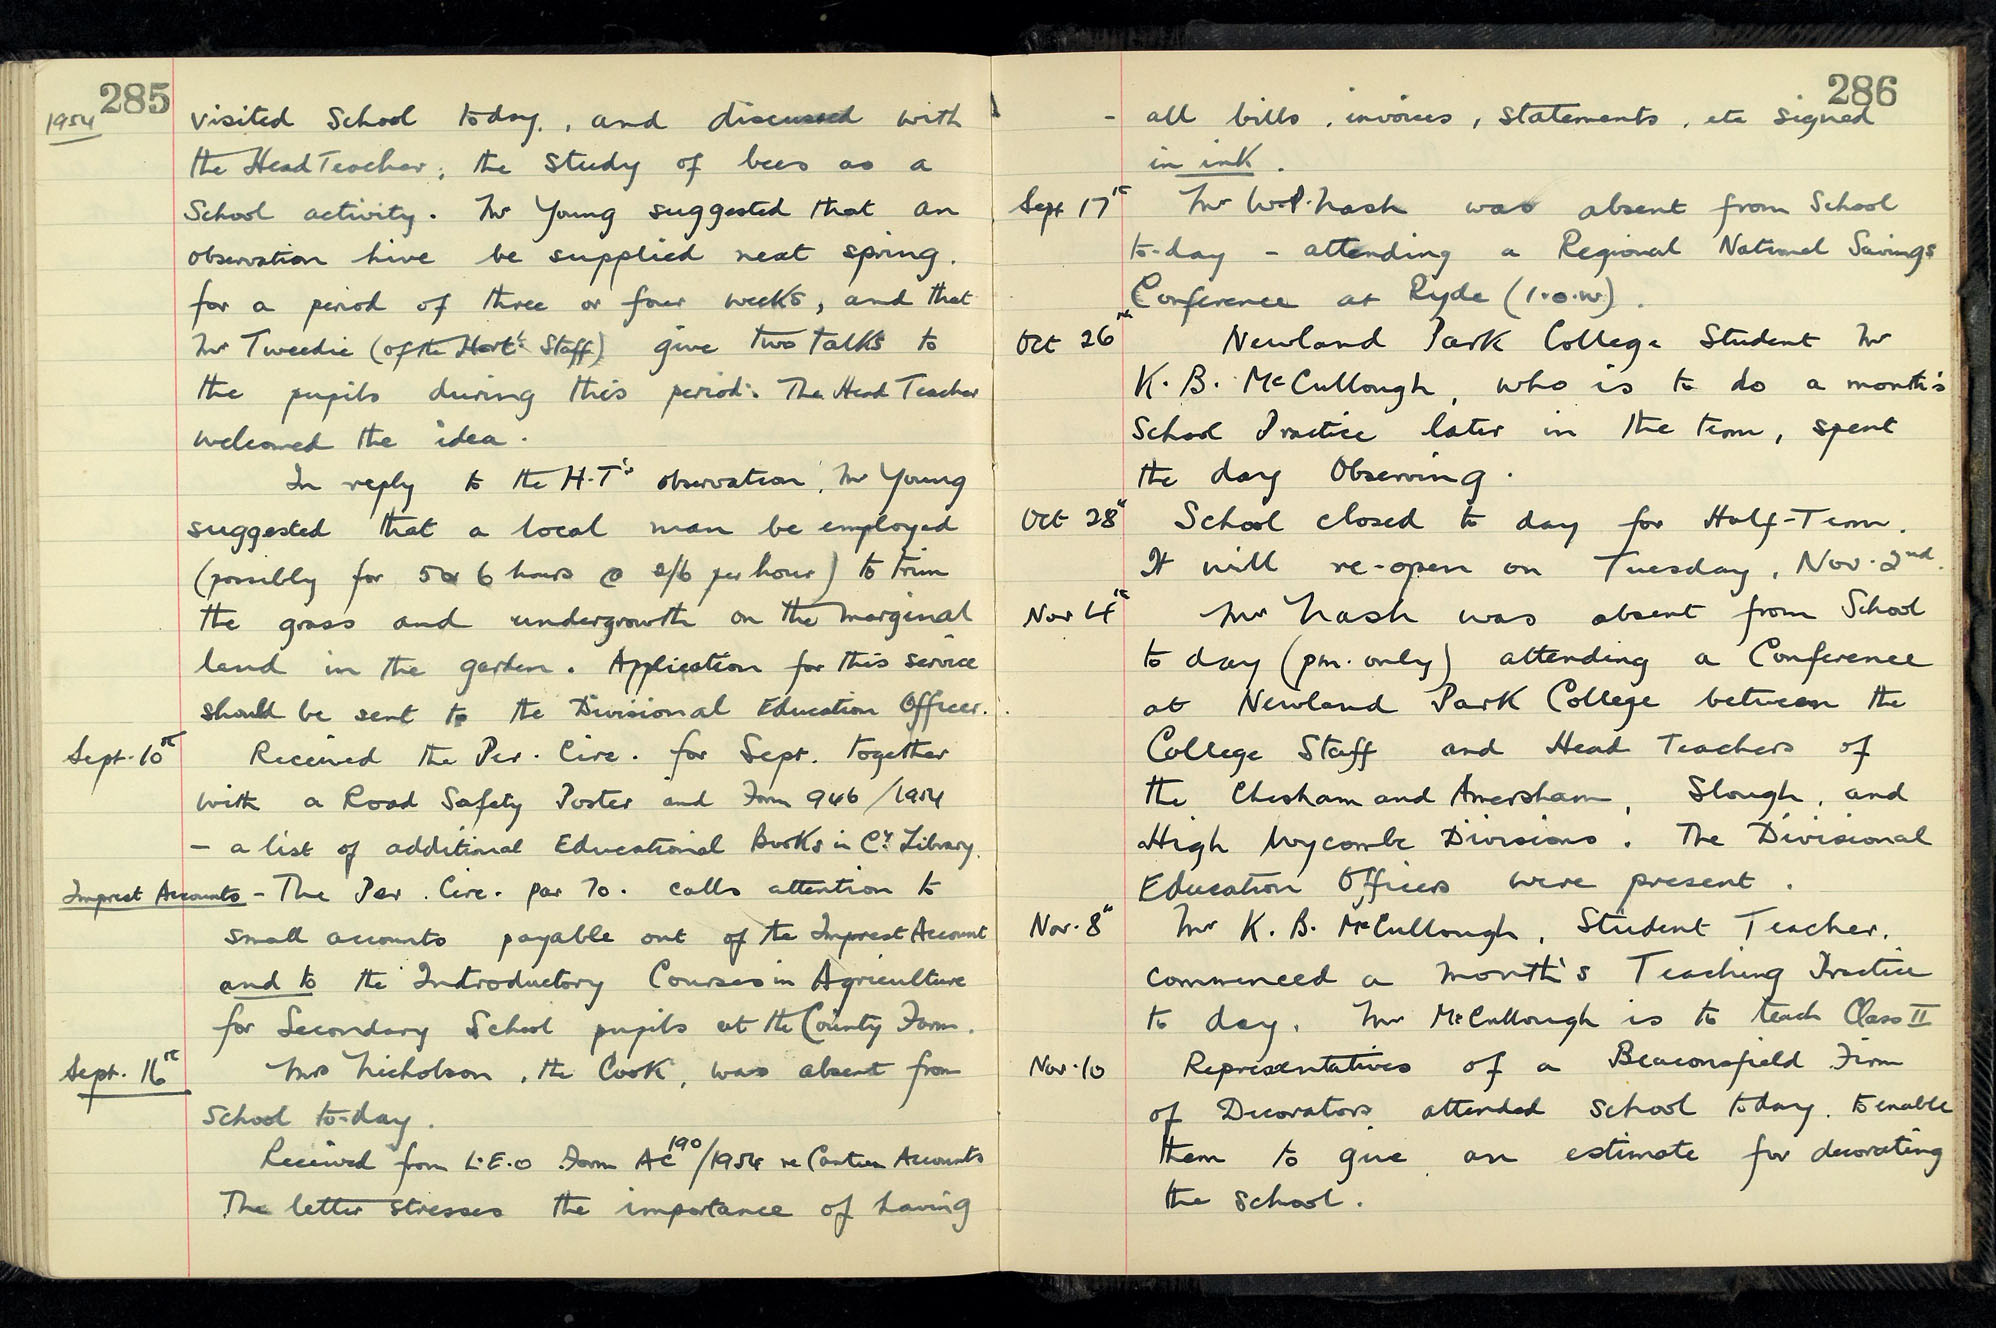 285
1954
visited School today, and discussed with
the Head Teacher, the study of bees as a
School activity. Mr Young suggested that an
observation hive be supplied next spring.
for a period of three or four weeks, and that
Mr Tweedie (of the Hort: Staff) give two talks to
the pupils during this period. The Head Teacher
welcomed the idea.
In reply to the H.T's observation, Mr Young
suggested that a local man be employed
(possibly for 5 or 6 hours @ 2/6 per hour) to trim
the grass and undergrowth on the marginal
land in the garden. Application for this service
should be sent to the Divisional Education Officer.
Sept. 10th Received the Per. Circ. for Sept. together
with a Road Safety Poster and Form 946/1954
- a list of additional Educational Books in Cy. Library.
Imprest Accounts - The Per. Circ. par 70. calls attention to
small accounts payable out of the Imprest Account
and to the Introductory Courses in Agriculture
for Secondary School pupils at the County Farm.
Sept. 16th Mrs Nicholson, the Cook, was absent from
School to-day.
Received from L.E.O Form AC 190/1954 re Canteen Accounts
The letter stresses the importance of having
286
- all bills, invoices, statements, etc signed
in ink.
Sept 17th Mr W.P. Nash was absent from School
to-day - attending a Regional National Savings
Conference at Ryde (I.O.W).
Oct 26th Newland Park College Student Mr
K. B. McCullough, who is to do a month's
School Practice later in the term, spent
the day Observing.
Oct 28th School closed to day for Half-Term.
It will re-open on Tuesday, Nov. 2nd.
Nov 4th Mr Nash was absent from School
to day (pm. only) attending a Conference
at Newland Park College between the
College Staff and Head Teachers of
the Chesham and Amersham, Slough, and
High Wycombe Divisions. The Divisional
Education Officers were present.
Nov. 8th Mr K. B. McCullough, Student Teacher,
commenced a month's Teaching Practice
to day. Mr McCullough is to teach Class II
Nov. 10 Representatives of a Beaconsfield Firm
of Decorators attended school today, to enable
them to give an estimate for decorating
the school.